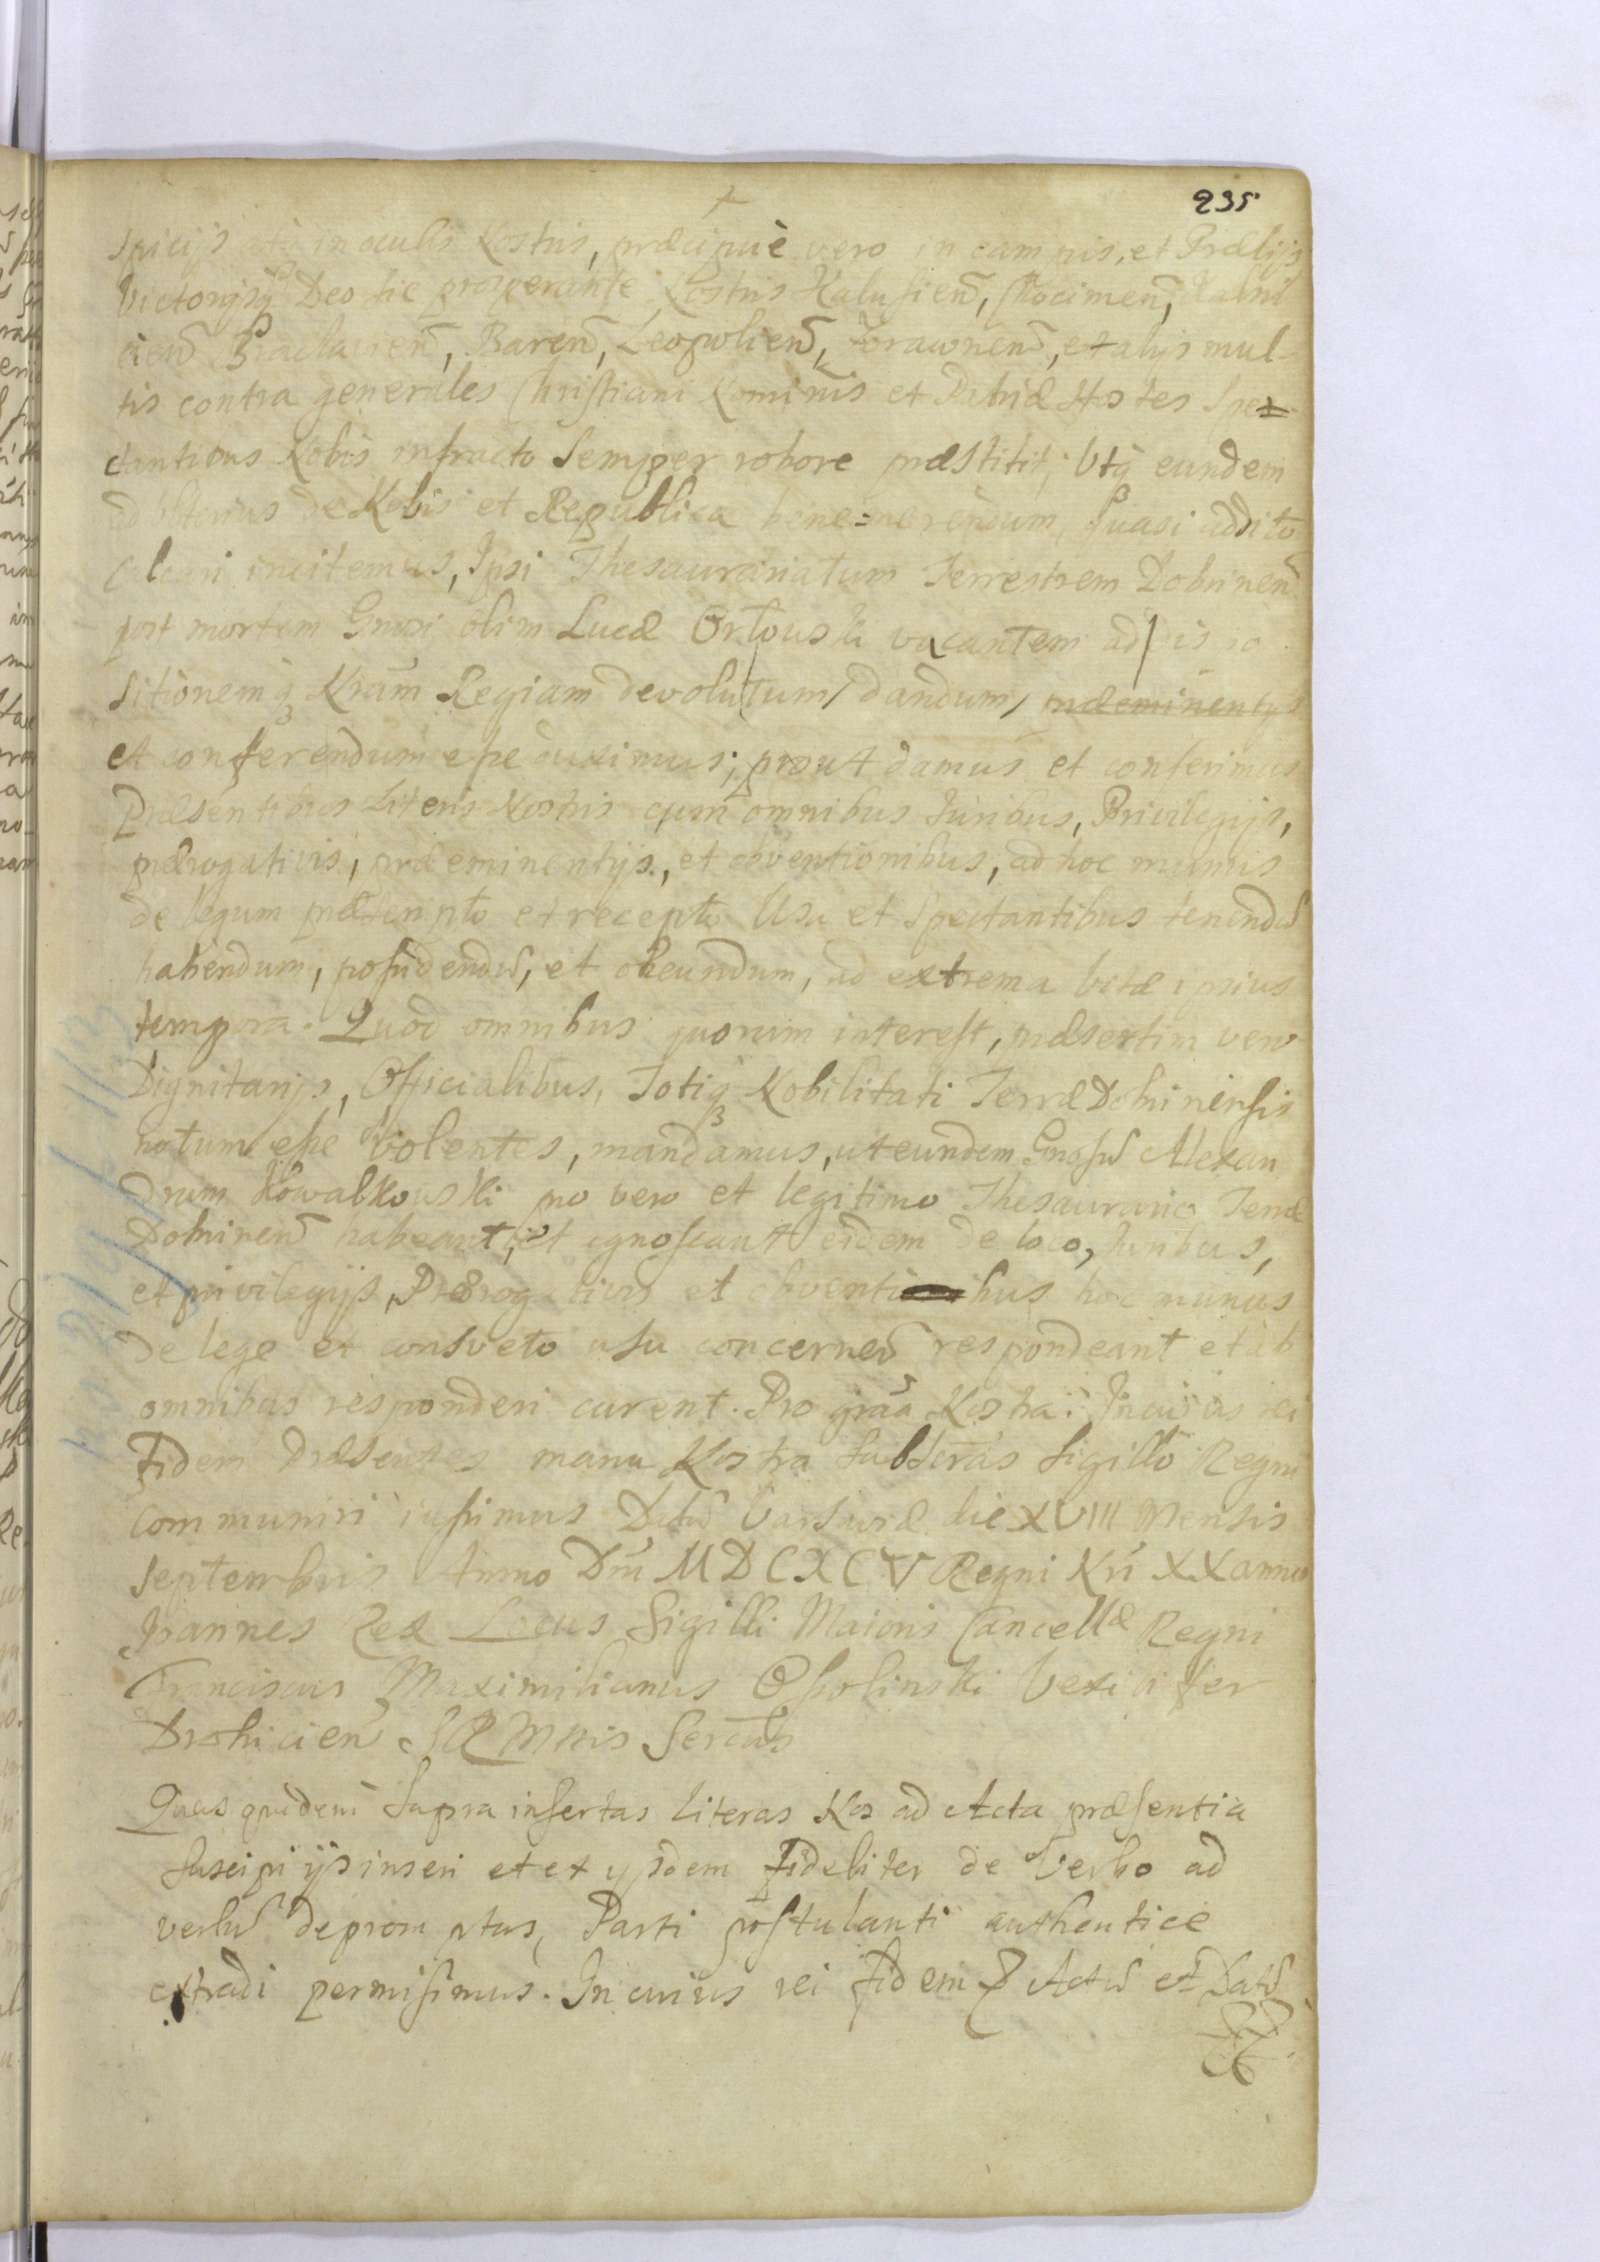 235
spicijs atq in oculis Nostris, præcipuè vero in campis, et Prælijs
Victorijsq Deo sic prosperante Nostris Kalusien, Chocimen, Kalni
cien Braclavien, Baren, Leopolien, Zorawnen, et alijs mul-
tis contra generales Christiani Nominis et Patriæ Hostes Spe=
ctantibus Nobis infracto Semper robore præstitit; Utq eundem
ad ulterius de Nobis et Republica bene=merendum, quasi addito
calcari incitemus, Ipsi Thesaurariatum Terrestrem Dobrinen
post mortem Gnosi olim Lucæ Orłowski vacantem ad dispo
sitionemq Nram Regiam devolutum, dandum,
et conferendum esse duximus; prout damus et conferimus
Præsentibus Literis Nostris cum omnibus Iuribus, Privilegijs,
prærogativis, præeminentijs, et obventionibus, ad hoc munus
de legum præscripto et recepto Usu et Spectantibus tenendu
habendum, possidendu, et obeundum, ad extrema vitæ ipsius
tempora. Quod omnibus quorum interest, præsertim vero
Dignitarijs, Officialibus, Totiq Nobilitati Terræ Dobrinensis
notum esse Volentes, mandamus, ut eundem Gnosu Alexan
drum Kowalkowski pro vero et legitimo Thesaurario Terræ
Dobrinen habeant, et agnoscant eidem de loco, Iuribus,
et privilegijs, Prærogativis et obventionibus hoc munus
de lege et consveto usu concernen respondeant et ab
omnibus responderi curent. Pro graa Nostra. In cuius rei
Fidem Præsentes manu Nostra Subscras Sigillo Regni
communiri iussimus Datu Varsaviæ die XVIII Mensis
Septembris Anno Dni MDCXCV Regni Nri XX anno
Ioannes Rex Locus Sigilli Maioris Cancellæ Regni
Franciscus Maximilianus Ossolinski Vexilifer
Drohicien SRMttis Secrius
Quas quidem Supra insertas literas Nos ad Acta præsentia
suscipi ijs inseri et ex ijsdem fideliter de Verbo ad
verbu depromptas, Parti postulanti authentice
extradi permisimus. In cuius rei fidem Actu et Datu